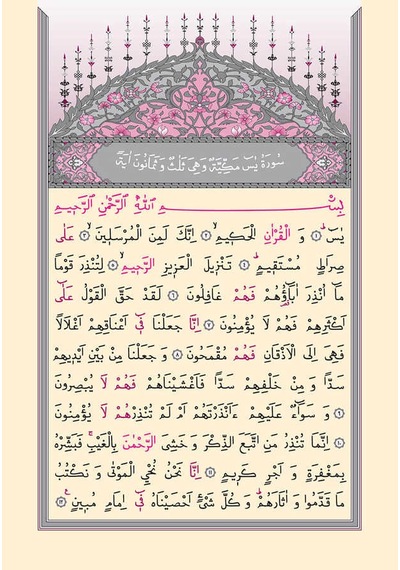 سُورَةُ يٰسٓ مَكِّيَّةٌ وَهِيَ ثَلٰثٌ وَثَمَانُونَ اٰيَةً
بِسْمِ اللّٰهِ الرَّحْمٰنِ الرَّحِيمِ
يٰسٓ ﴿١﴾ وَ الْقُرْاٰنِ الْحَكِيمِ ﴿٢﴾ اِنَّكَ لَمِنَ الْمُرْسَلِينَ ﴿٣﴾ عَلٰى
صِرَاطٍ مُسْتَقِيمٍ ﴿٤﴾ تَنْزِيلَ الْعَزِيزِ الرَّحِيمِ ﴿٥﴾ لِتُنْذِرَ قَوْمًا
مَا اُنْذِرَ اٰبَاؤُهُمْ فَهُمْ غَافِلُونَ ﴿٦﴾ لَقَدْ حَقَّ الْقَوْلُ عَلٰى
اَكْثَرِهِمْ فَهُمْ لَا يُؤْمِنُونَ ﴿٧﴾ اِنَّا جَعَلْنَا فِى اَعْنَاقِهِمْ اَغْلَالًا
فَهِىَ اِلَى الْاَذْقَانِ فَهُمْ مُقْمَحُونَ ﴿٨﴾ وَ جَعَلْنَا مِنْ بَيْنِ اَيْدِيهِمْ
سَدًّا وَ مِنْ خَلْفِهِمْ سَدًّا فَاَغْشَيْنَاهُمْ فَهُمْ لَا يُبْصِرُونَ
﴿٩﴾ وَ سَوَاءٌ عَلَيْهِمْ ءَاَنْذَرْتَهُمْ اَمْ لَمْ تُنْذِرْهُمْ لَا يُؤْمِنُونَ
﴿١٠﴾ اِنَّمَا تُنْذِرُ مَنِ اتَّبَعَ الذِّكْرَ وَ خَشِىَ الرَّحْمٰنَ بِالْغَيْبِ فَبَشِّرْهُ
بِمَغْفِرَةٍ وَ اَجْرٍ كَرِيمٍ ﴿١١﴾ اِنَّا نَحْنُ نُحْىِ الْمَوْتٰى وَ نَكْتُبُ
مَا قَدَّمُوا وَ اٰثَارَهُمْ وَ كُلَّ شَىْءٍ اَحْصَيْنَاهُ فِى اِمَامٍ مُبِينٍ ﴿١٢﴾